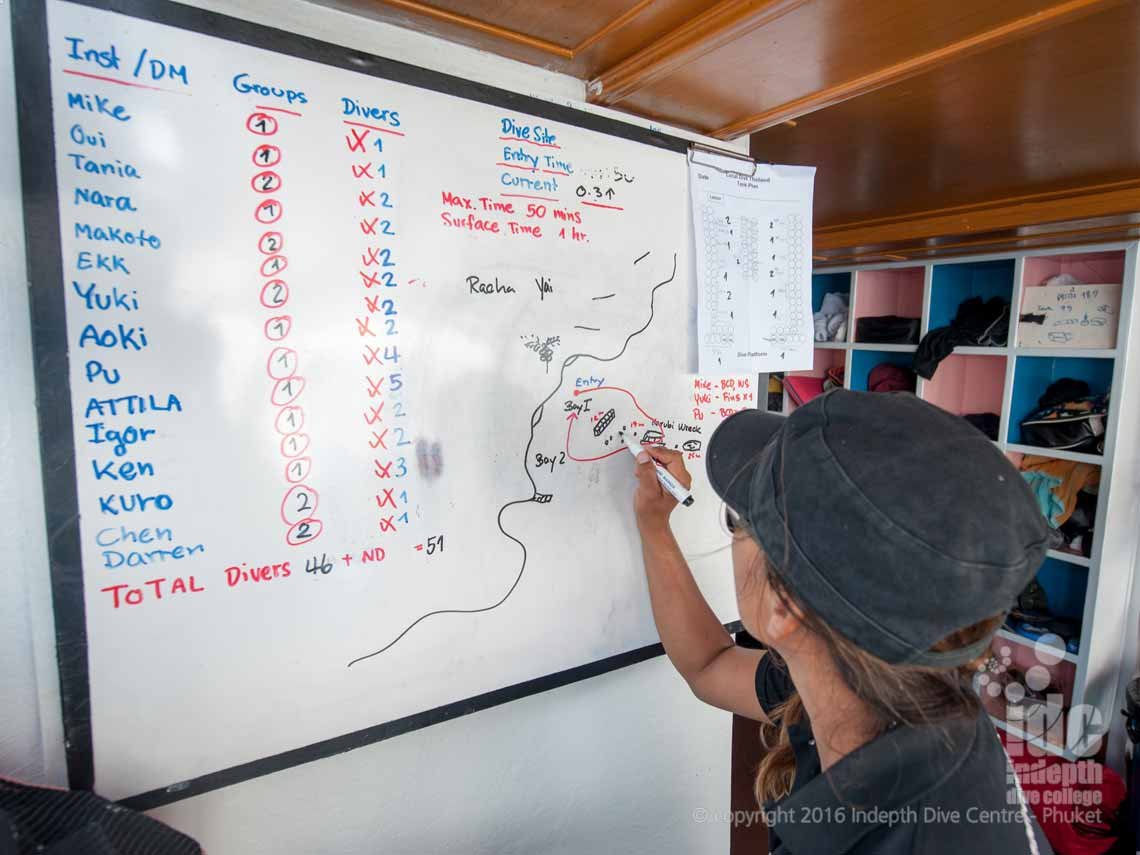 Inst/DM Groups Divers
Mike 1 X 1
Oui 1 X 1
Tania 2 X 2
Nara 1 X 2
Makoto 2 X 2
EKK 1 X 2
Yuki 2 X 2
Aoki 1 X 2
Pu 1 X 4
ATTILA 1 X 5
Igor 1 X 2
Ken 1 X 2
Kuro 1 X 3
Chen 2 X 1
Darren 2 X 1
ToTAL Divers 46 + ND = 51
Dive Site
Entry Time
Current 0.3↑
Max. Time 50 mins
Surface Time 1 hr.
Racha Yai
Entry
Bay 1
Bay 2
Wreck
Date
Task Plan
Dive Platform
Mike - BCD, WS
Yuki - Fins x1
Pu -
idc
indepth
dive college
© copyright 2016 Indepth Dive Centre - Phuket